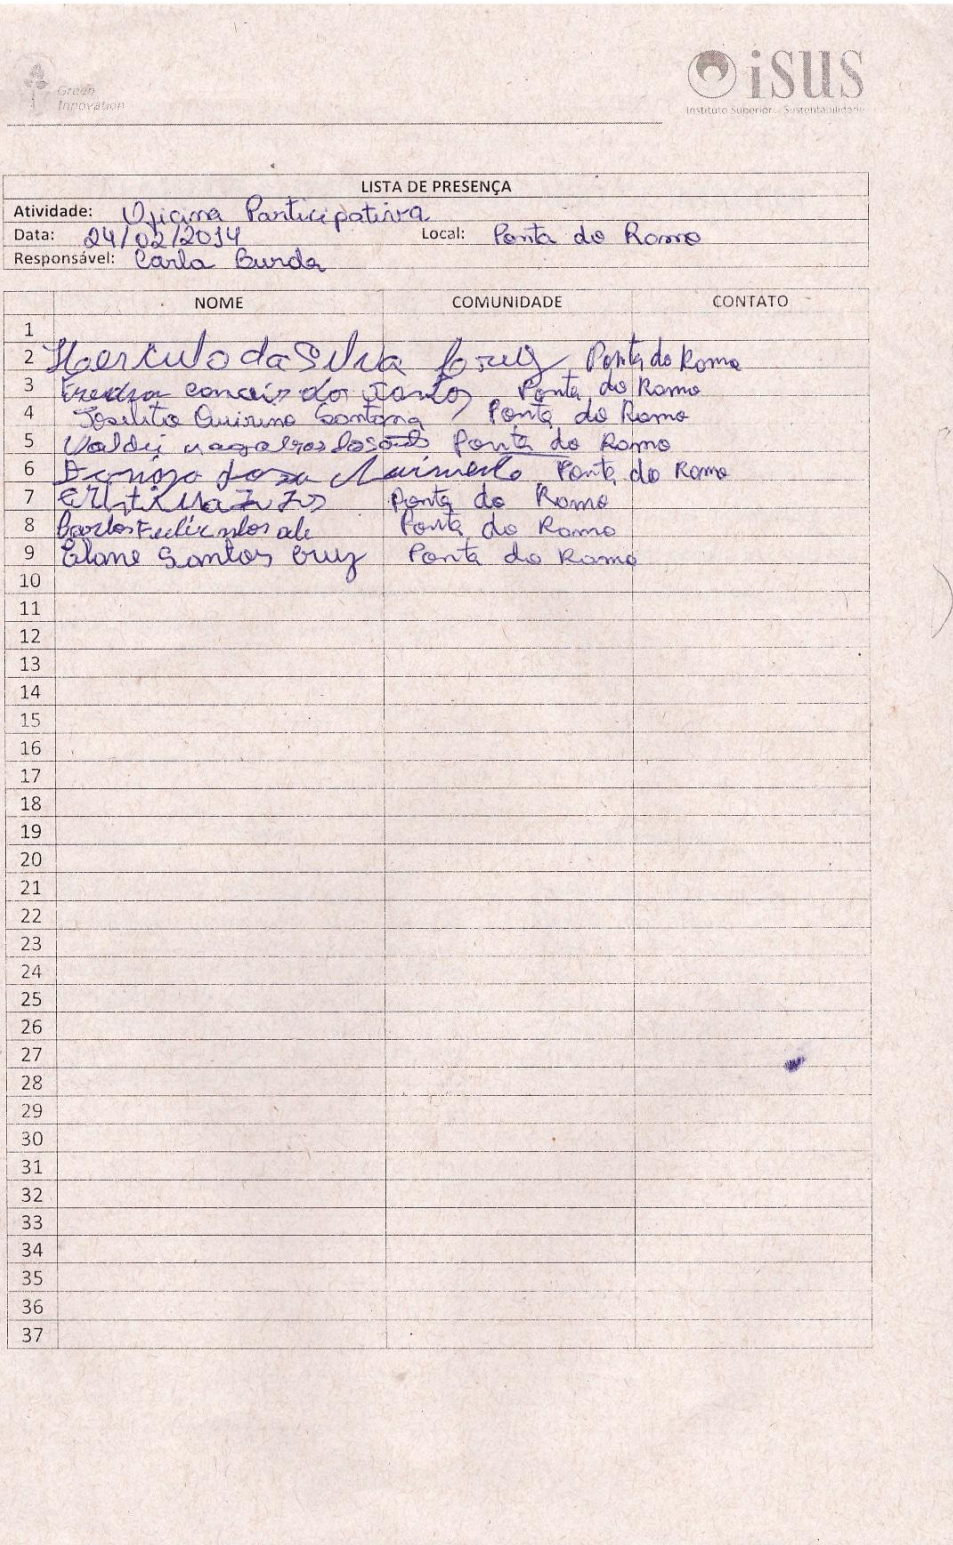 Green
Innovation
iSUS
Instituto Superior Sustentabilidade
LISTA DE PRESENÇA
Atividade: Oficina Participativa
Data: 24/02/2014 Local: Ponta do Ramo
Responsável: Carla Burda
NOME COMUNIDADE CONTATO
1
2 da Silva Cruz Ponta do Ramo
3 dos Santos Ponta do Ramo
4 Joselito Quirino Santana Ponta do Ramo
5 Ponta do Ramo
6 Ponta do Ramo
7 Ponta do Ramo
8 Carlos Ponta do Ramo
9 Elane Santos Cruz Ponta do Ramo
10
11
12
13
14
15
16
17
18
19
20
21
22
23
24
25
26
27
28
29
30
31
32
33
34
35
36
37